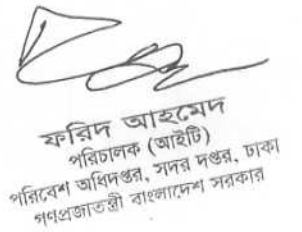 ফরিদ আহমেদ
পরিচালক (আইটি)
পরিবেশ অধিদপ্তর, সদর দপ্তর, ঢাকা
গণপ্রজাতন্ত্রী বাংলাদেশ সরকার